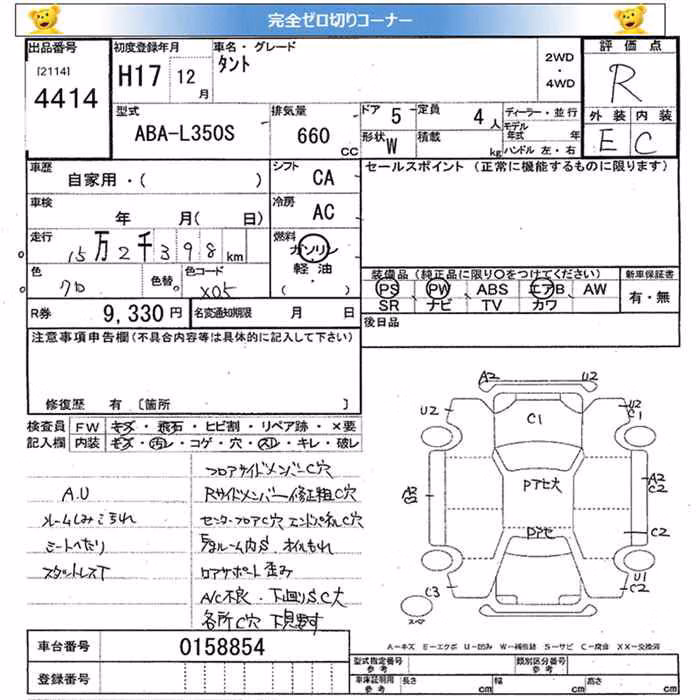 完全ゼロ切りコーナー
出品番号
[2114]
4414
初度登録年月
H17 12月
車名・グレード
タント
2WD
・
4WD
評価点
R
外装 内装
E C
型式
ABA-L350S
排気量
660 CC
ドア 5
定員 4人
形状 W
積載 kg
ディーラー・並行
モデル年式 年
ハンドル 左・右
車歴
自家用・( )
シフト CA
車検
年 月( 日)
冷房 AC
走行
15万2千398km
燃料
ガソリン
軽油
( ・ )
色
クロ
色替
色コード
X05
R券 9,330円
名変通知期限 月 日
セールスポイント (正常に機能するものに限ります)
装備品(純正品に限り〇をつけてください)
PS PW ABS エアB AW
SR ナビ TV カワ
新車保証書
有・無
後日品
注意事項申告欄(不具合内容等は具体的に記入して下さい)
修復歴 有 〔箇所 〕
検査員記入欄
FW キズ・飛石・ヒビ割・リペア跡・×要
内装 キズ・汚レ・コゲ・穴・スレ・キレ・破レ
A.U
ルームしみこげれ
シートへたり
スタットレスT
フロアサイドメンバーC穴
Rサイドメンバー修正粗C穴
センターフロアC穴 エンドパネルC穴
ルーム内S.オイルもれ
ロアサポート歪み
A/C不良・下回りS.C大
各所C穴 下見要す
A2
U2
U2
C1
U2
C1
Pアセ大
A2
C2
Pアセ
C2
C3
U1
C2
スペア
A=キズ E=エクボ U=凹み W=補修跡 S=サビ C=腐食 XX=交換済
車台番号 0158854
登録番号
型式指定番号
参考
類別区分番号
参考
車庫証明用
参考
長さ cm 幅 cm 高さ cm